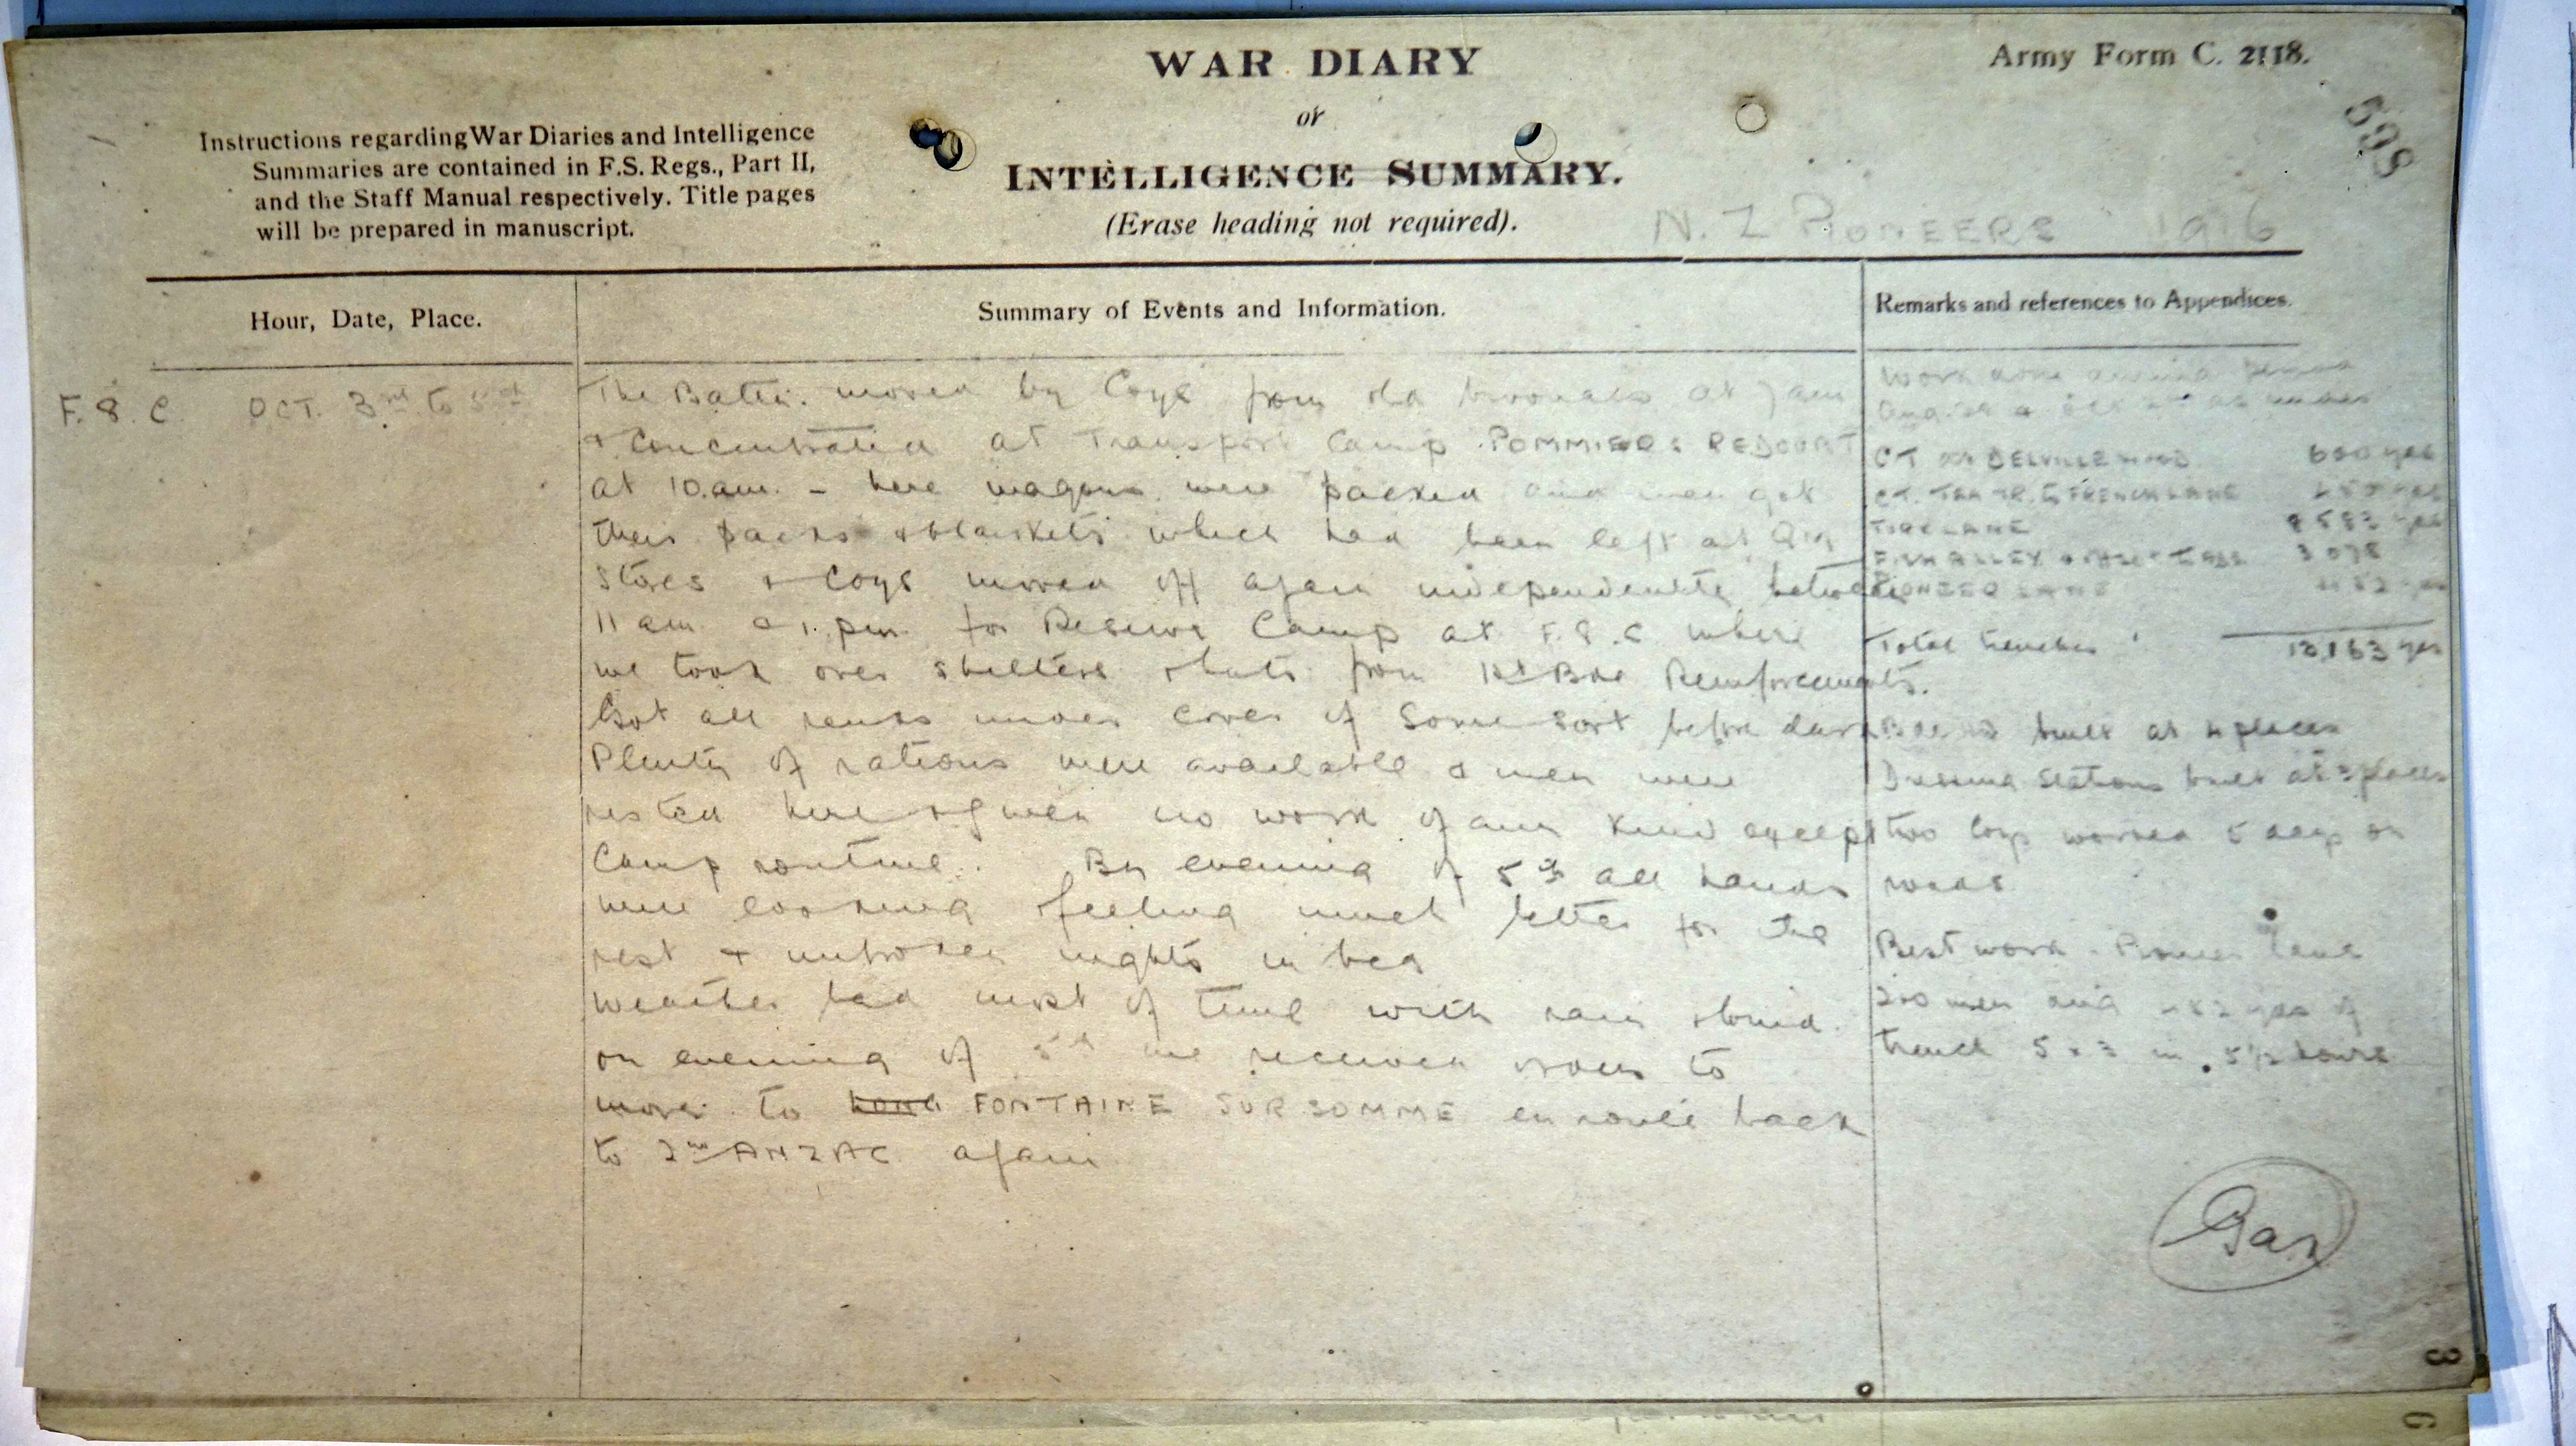 WAR DIARY
or
INTELLIGENCE SUMMARY.
(Erase heading not required).
Army Form C. 2118.
Instructions regarding War Diaries and Intelligence
Summaries are contained in F.S. Regs., Part II,
and the Staff Manual respectively. Title pages
will be prepared in manuscript.
N. Z PIONEERS 1916
Hour, Date, Place.
Summary of Events and Information.
Remarks and references to Appendices.
F. 8. C OCT. 3rd to 5th
The Battn. moved by Coys from old bivouacs at 7 am
& concentrated at Transport Camp POMMIERS REDOUBT
at 10.am. - here wagons were packed and men got
their packs & blankets which had been left at QM
Stores & Coys moved off again independently between
11 am & 1. pm for Reserve Camp at F. 8. C where
we took over shelters & huts from 1st Bde Reinforcements.
Got all ranks under cover of some sort before dark
Plenty of rations were available & men were
rested here & given no work of any kind except
Camp routine. By evening of 5th all hands
were looking & feeling much better for the
rest & unbroken nights in bed
Weather bad most of time with rain & wind.
on evening of 5th we received orders to
move to FONTAINE SUR SOMME en route back
to 2nd ANZAC again
Work done during period
CT at DELVILLE WOOD 600 yds
CT. TEA TR. to FRENCH LANE
TURK LANE
FISH ALLEY
PIONEER LANE
Total trenches 13,163 yds
built at 4 places
Dressing Stations built at 3 places
two Coys worked 5 days on
roads
Best work - Pioneer Lane
200 men did yds of
trench 5 x 3 in 5½ hours
3